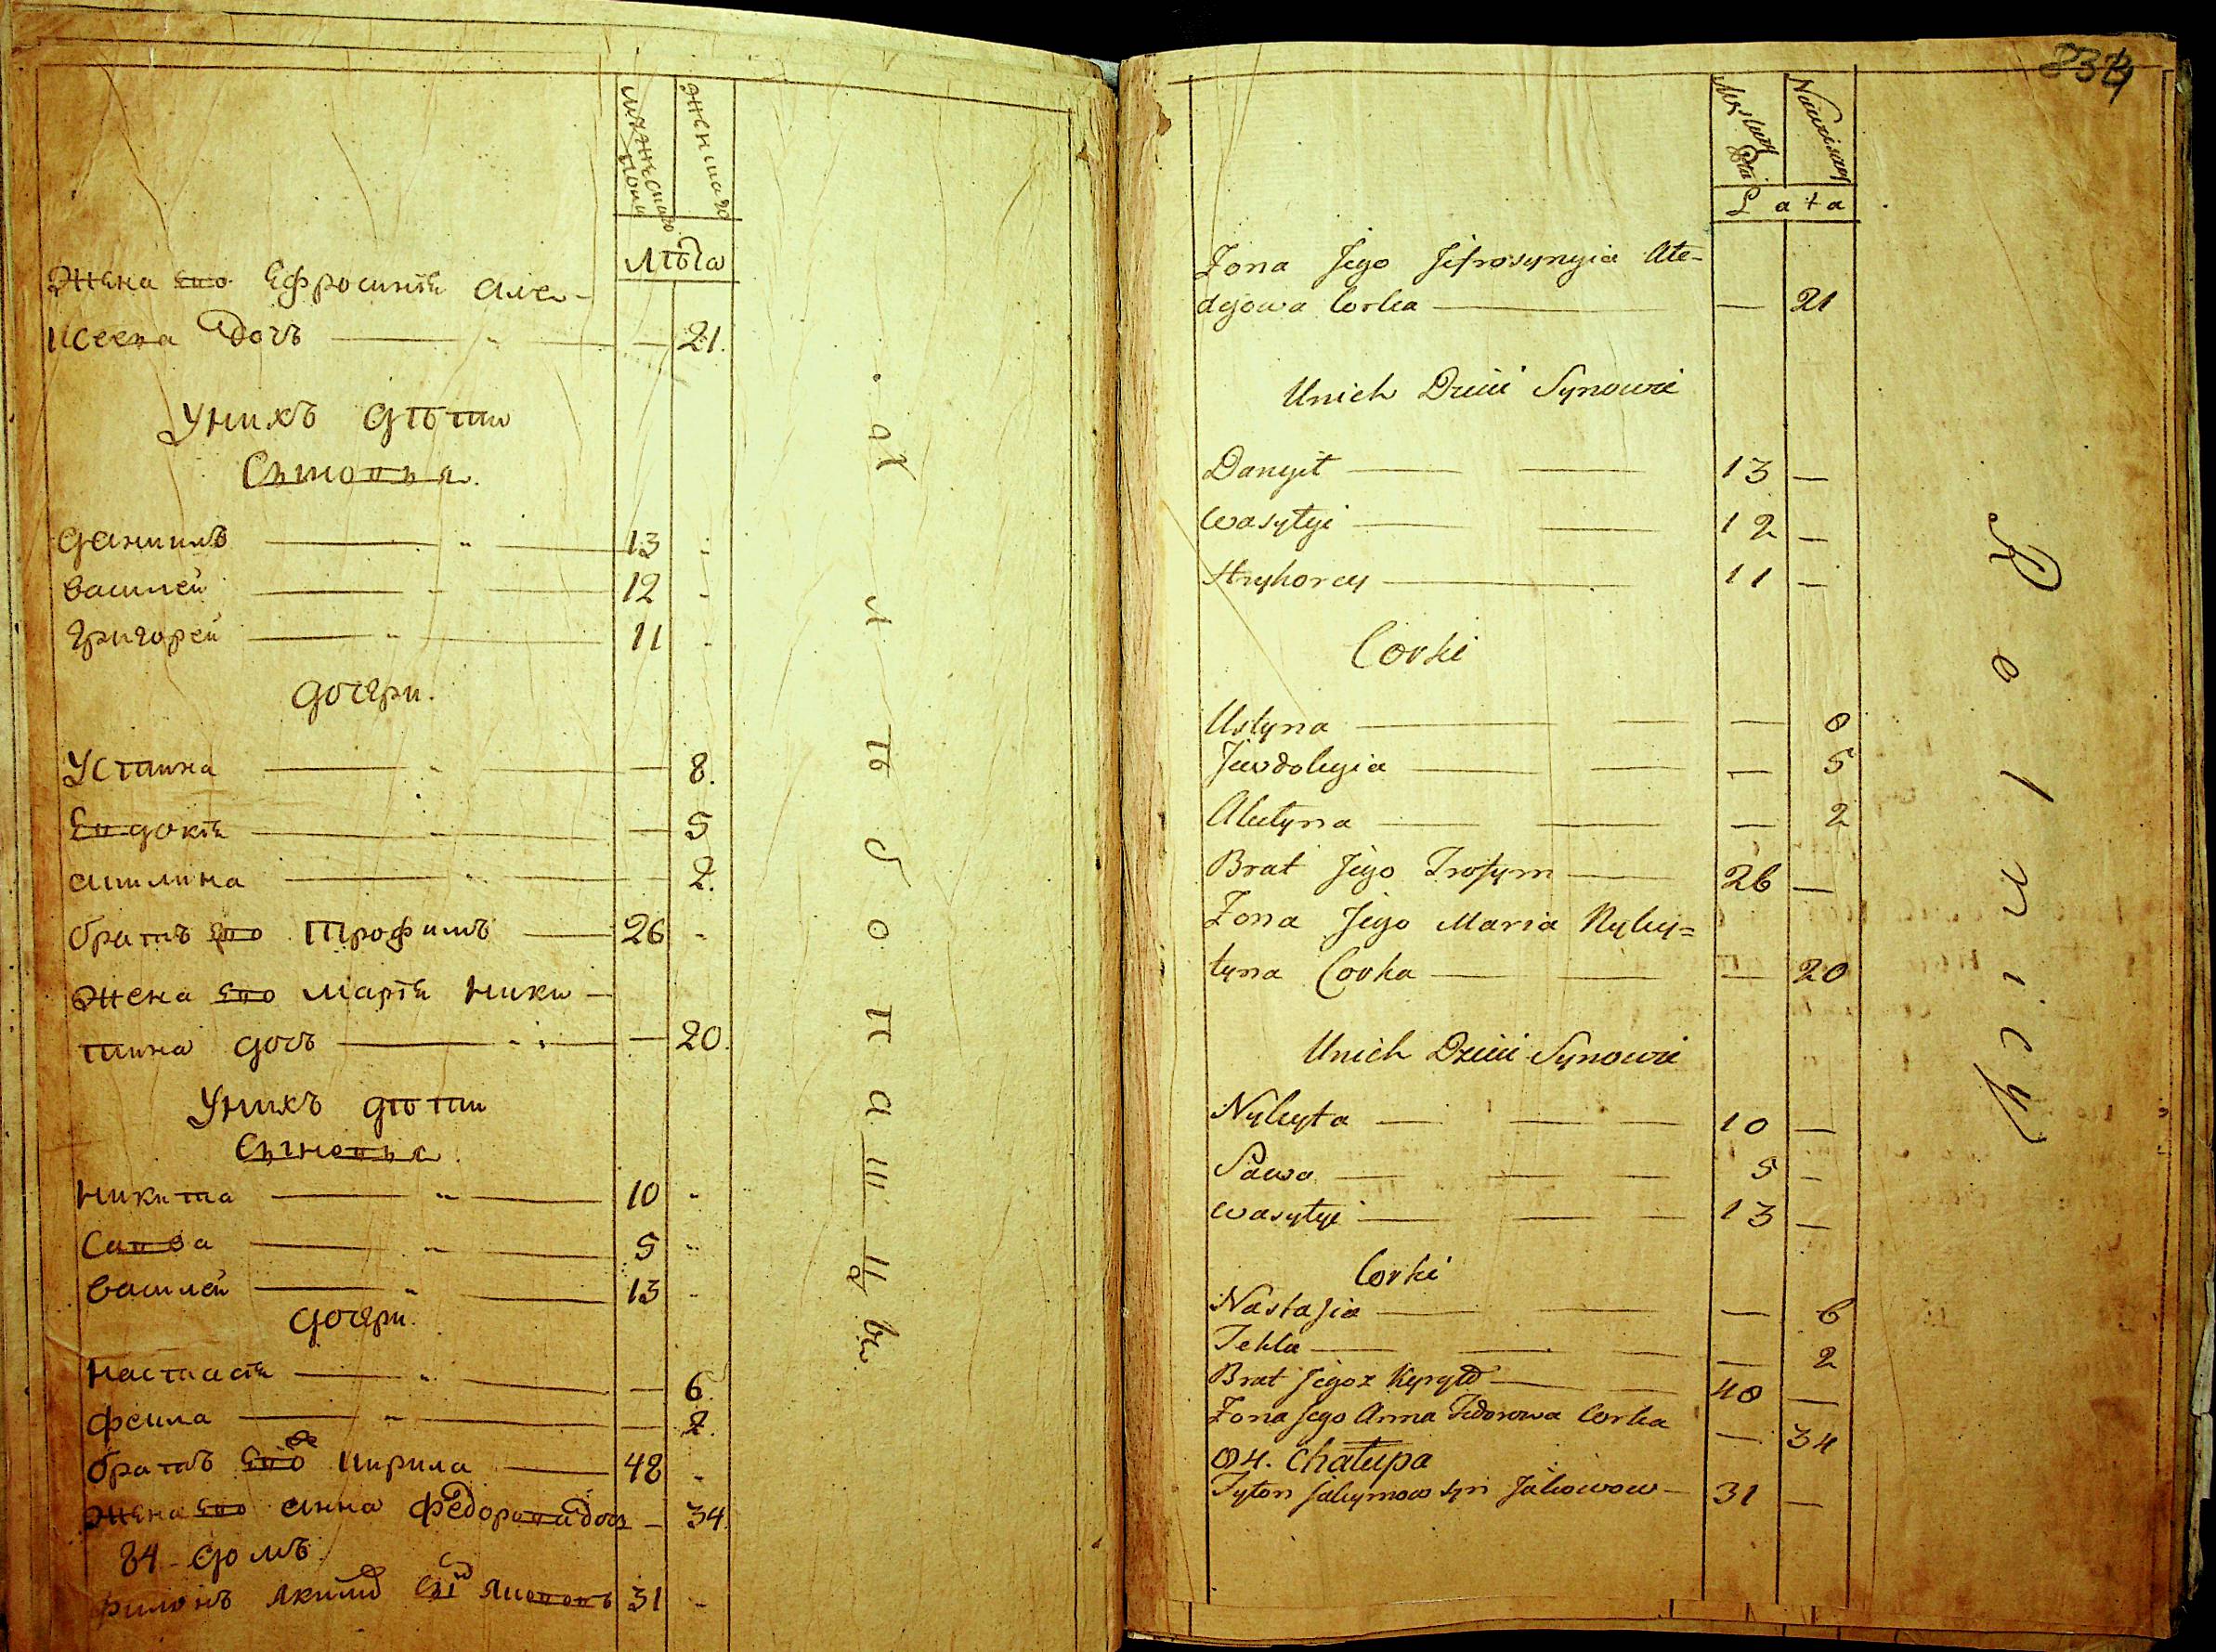 мужескаго пола
женскаго
лѣта
Жена его Ефросинія Але-
ксеева дочь — 21.
У нихъ дѣти
Сыновья.
Данишъ 13
Василей 12
Григорей 11
Дочери.
Устина — 8.
Евдокія — 5
Акилина — 2.
братъ его Трофимъ 26
Жена его Марія Ники-
тина дочь — 20.
У нихъ дѣти
Сыновья.
Никита 10
Савва 5
Василей 13
Дочери.
Настасія — 6.
Фекла — 2.
братъ его Кирила 48
Жена его Анна Федорова дочь — 34.
84 - домъ
31
Хлѣбопашцы
234
Męskiey płci
Niewiesciey
Lata
Zona Jego Jefrosyngia Ałe-
dejowa Corka — 21
Unich Dzieci Synowie
Danyił 13 —
Wasylyi 12 —
Hryhorey 11 —
Corki
Ustyna — 8
Jewdokyia — 5
Akulyna — 2
Brat Jego Trofym 26 —
Zona Jego Maria Nyky=
tyna Corka — 20
Unich Dzieci Synowie
Nykyta 10 —
Sawa 5 —
Wasylyi 13 —
Corki
Nastasia — 6
Tekla — 2
Brat Jegoz Kyryło 48 —
Zona Jego Anna Fedorowa Corka — 34
84. Chałupa
Jakymow syn Jakowow 31 —
Rolnicy